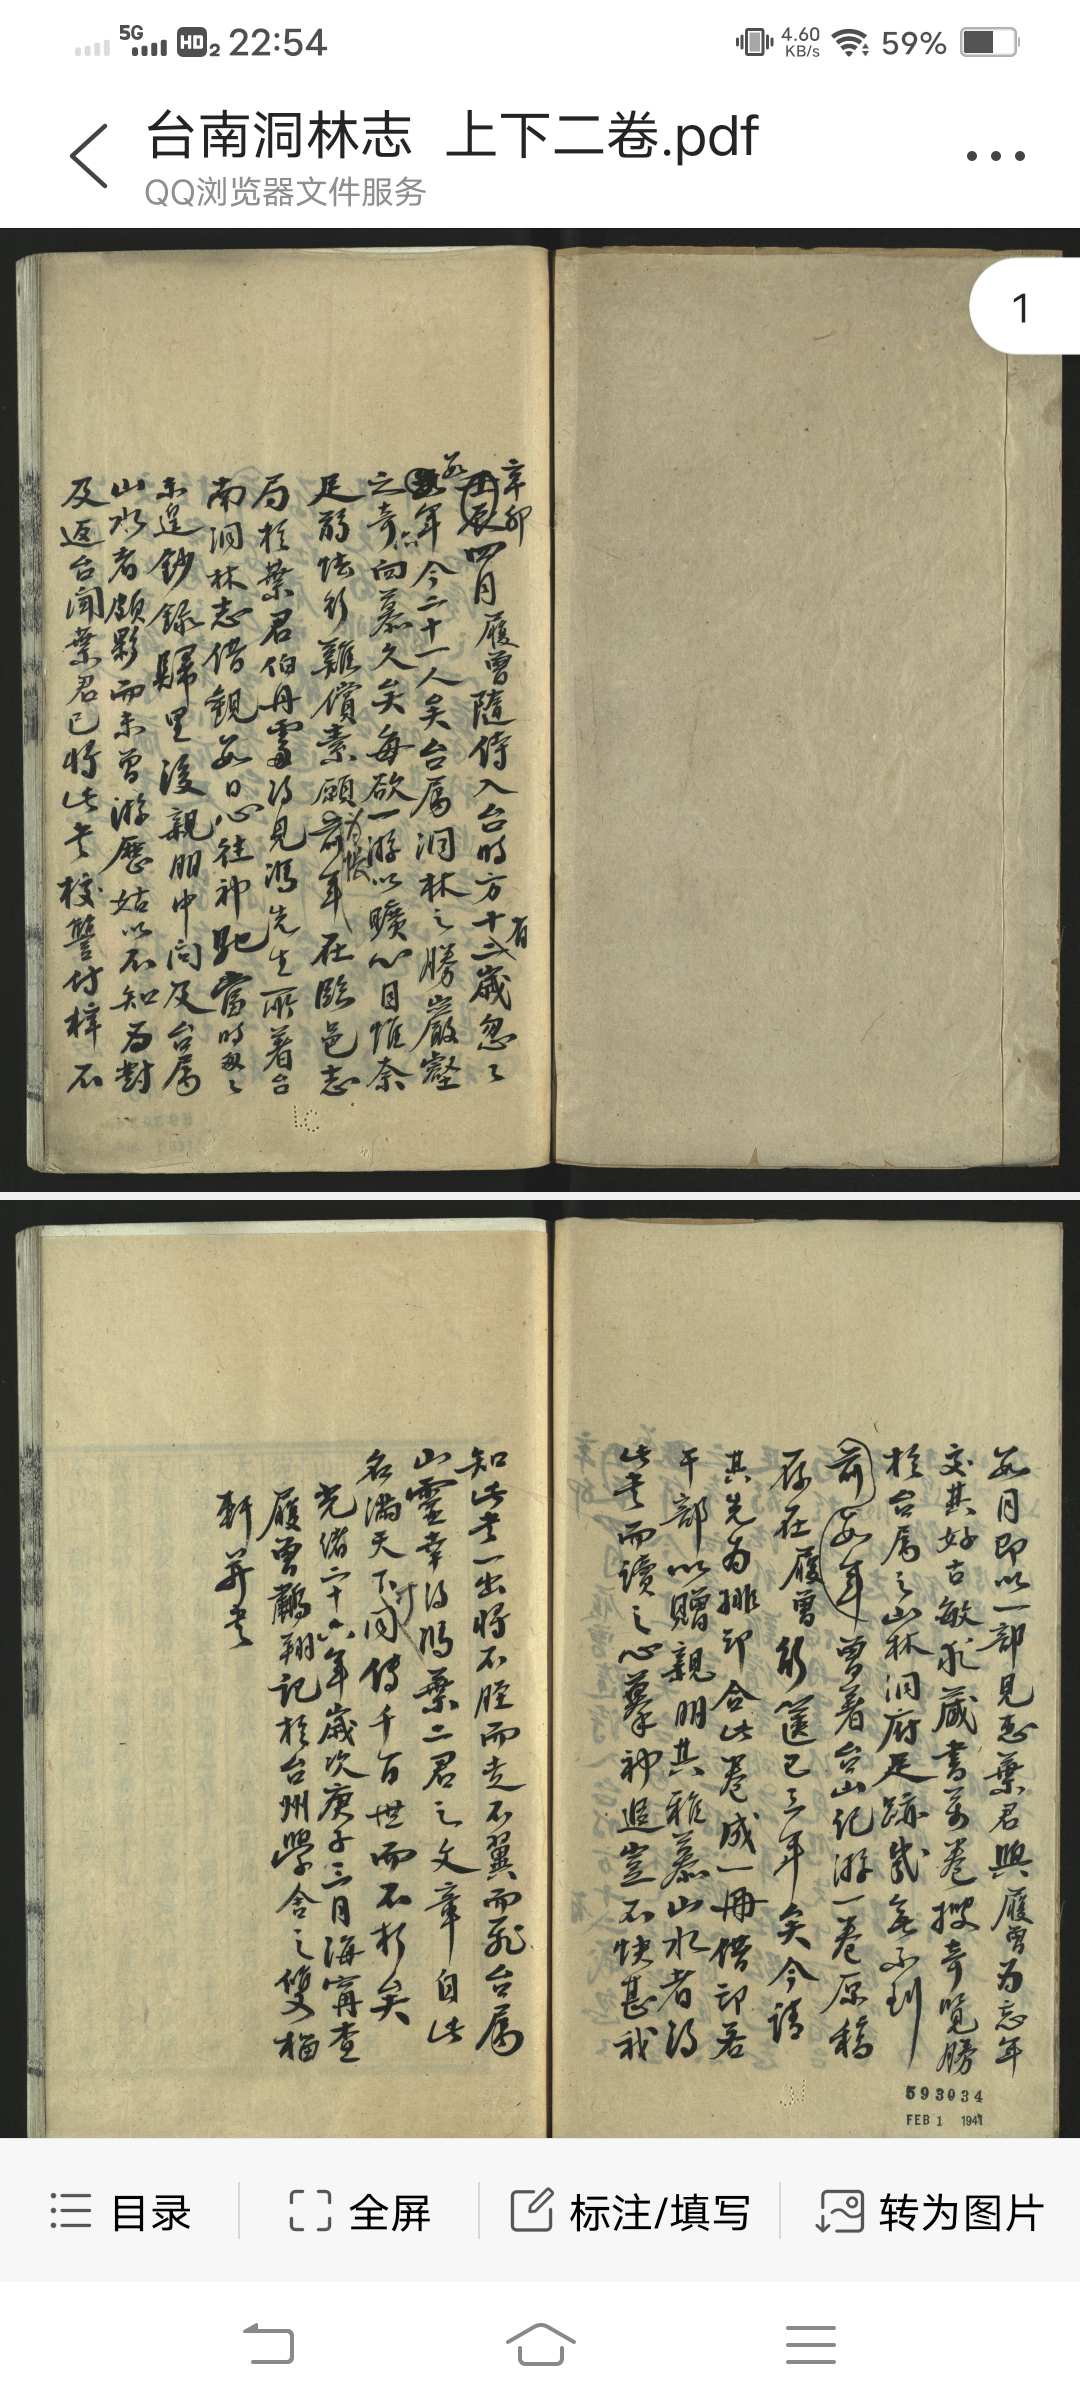 5G HD 2 22:54 4.60 KB/s 59%
台南洞林志 上下二卷.pdf
QQ浏览器文件服务
1
辛卯
壬辰四月履曾隨侍入台時方十二歲忽々
有
年今二十一人矣台属洞林之勝巖壑
之奇向慕久矣每欲一游以曠心目惟奈
足弱怯行難償素願前年在臨邑志
局於葉君伯丹處得見馮先生所著台
南洞林志借觀數日心往神馳當時匆々
未遑鈔錄歸里後親朋中問及台属
山水者頗夥而未曾游歷姑以不知為對
及返台聞葉君已將此書校讐付梓不
數月即以一部見惠葉君與履曾為忘年
交其好古敏求藏書萬卷搜奇覽勝
於台属之山林洞府足跡幾無不到
前數年曾著台山記游一卷原稿
存在履曾行篋已三年矣今請
其先為排印合此卷成一冊借印若
干部以贈親朋其雅慕山水者得
此書而讀之心摹神追豈不快甚我
593034
FEB 1 1941
知此書一出將不脛而走不翼而飛台属
山靈幸得馮葉二君之文章自此
名滿天下同傳千百世而不朽矣
光緒二十六年歲次庚子三月海甯查
履曾鸝翔記於台州學舍之雙梅
軒並書
目录
全屏
标注/填写
转为图片